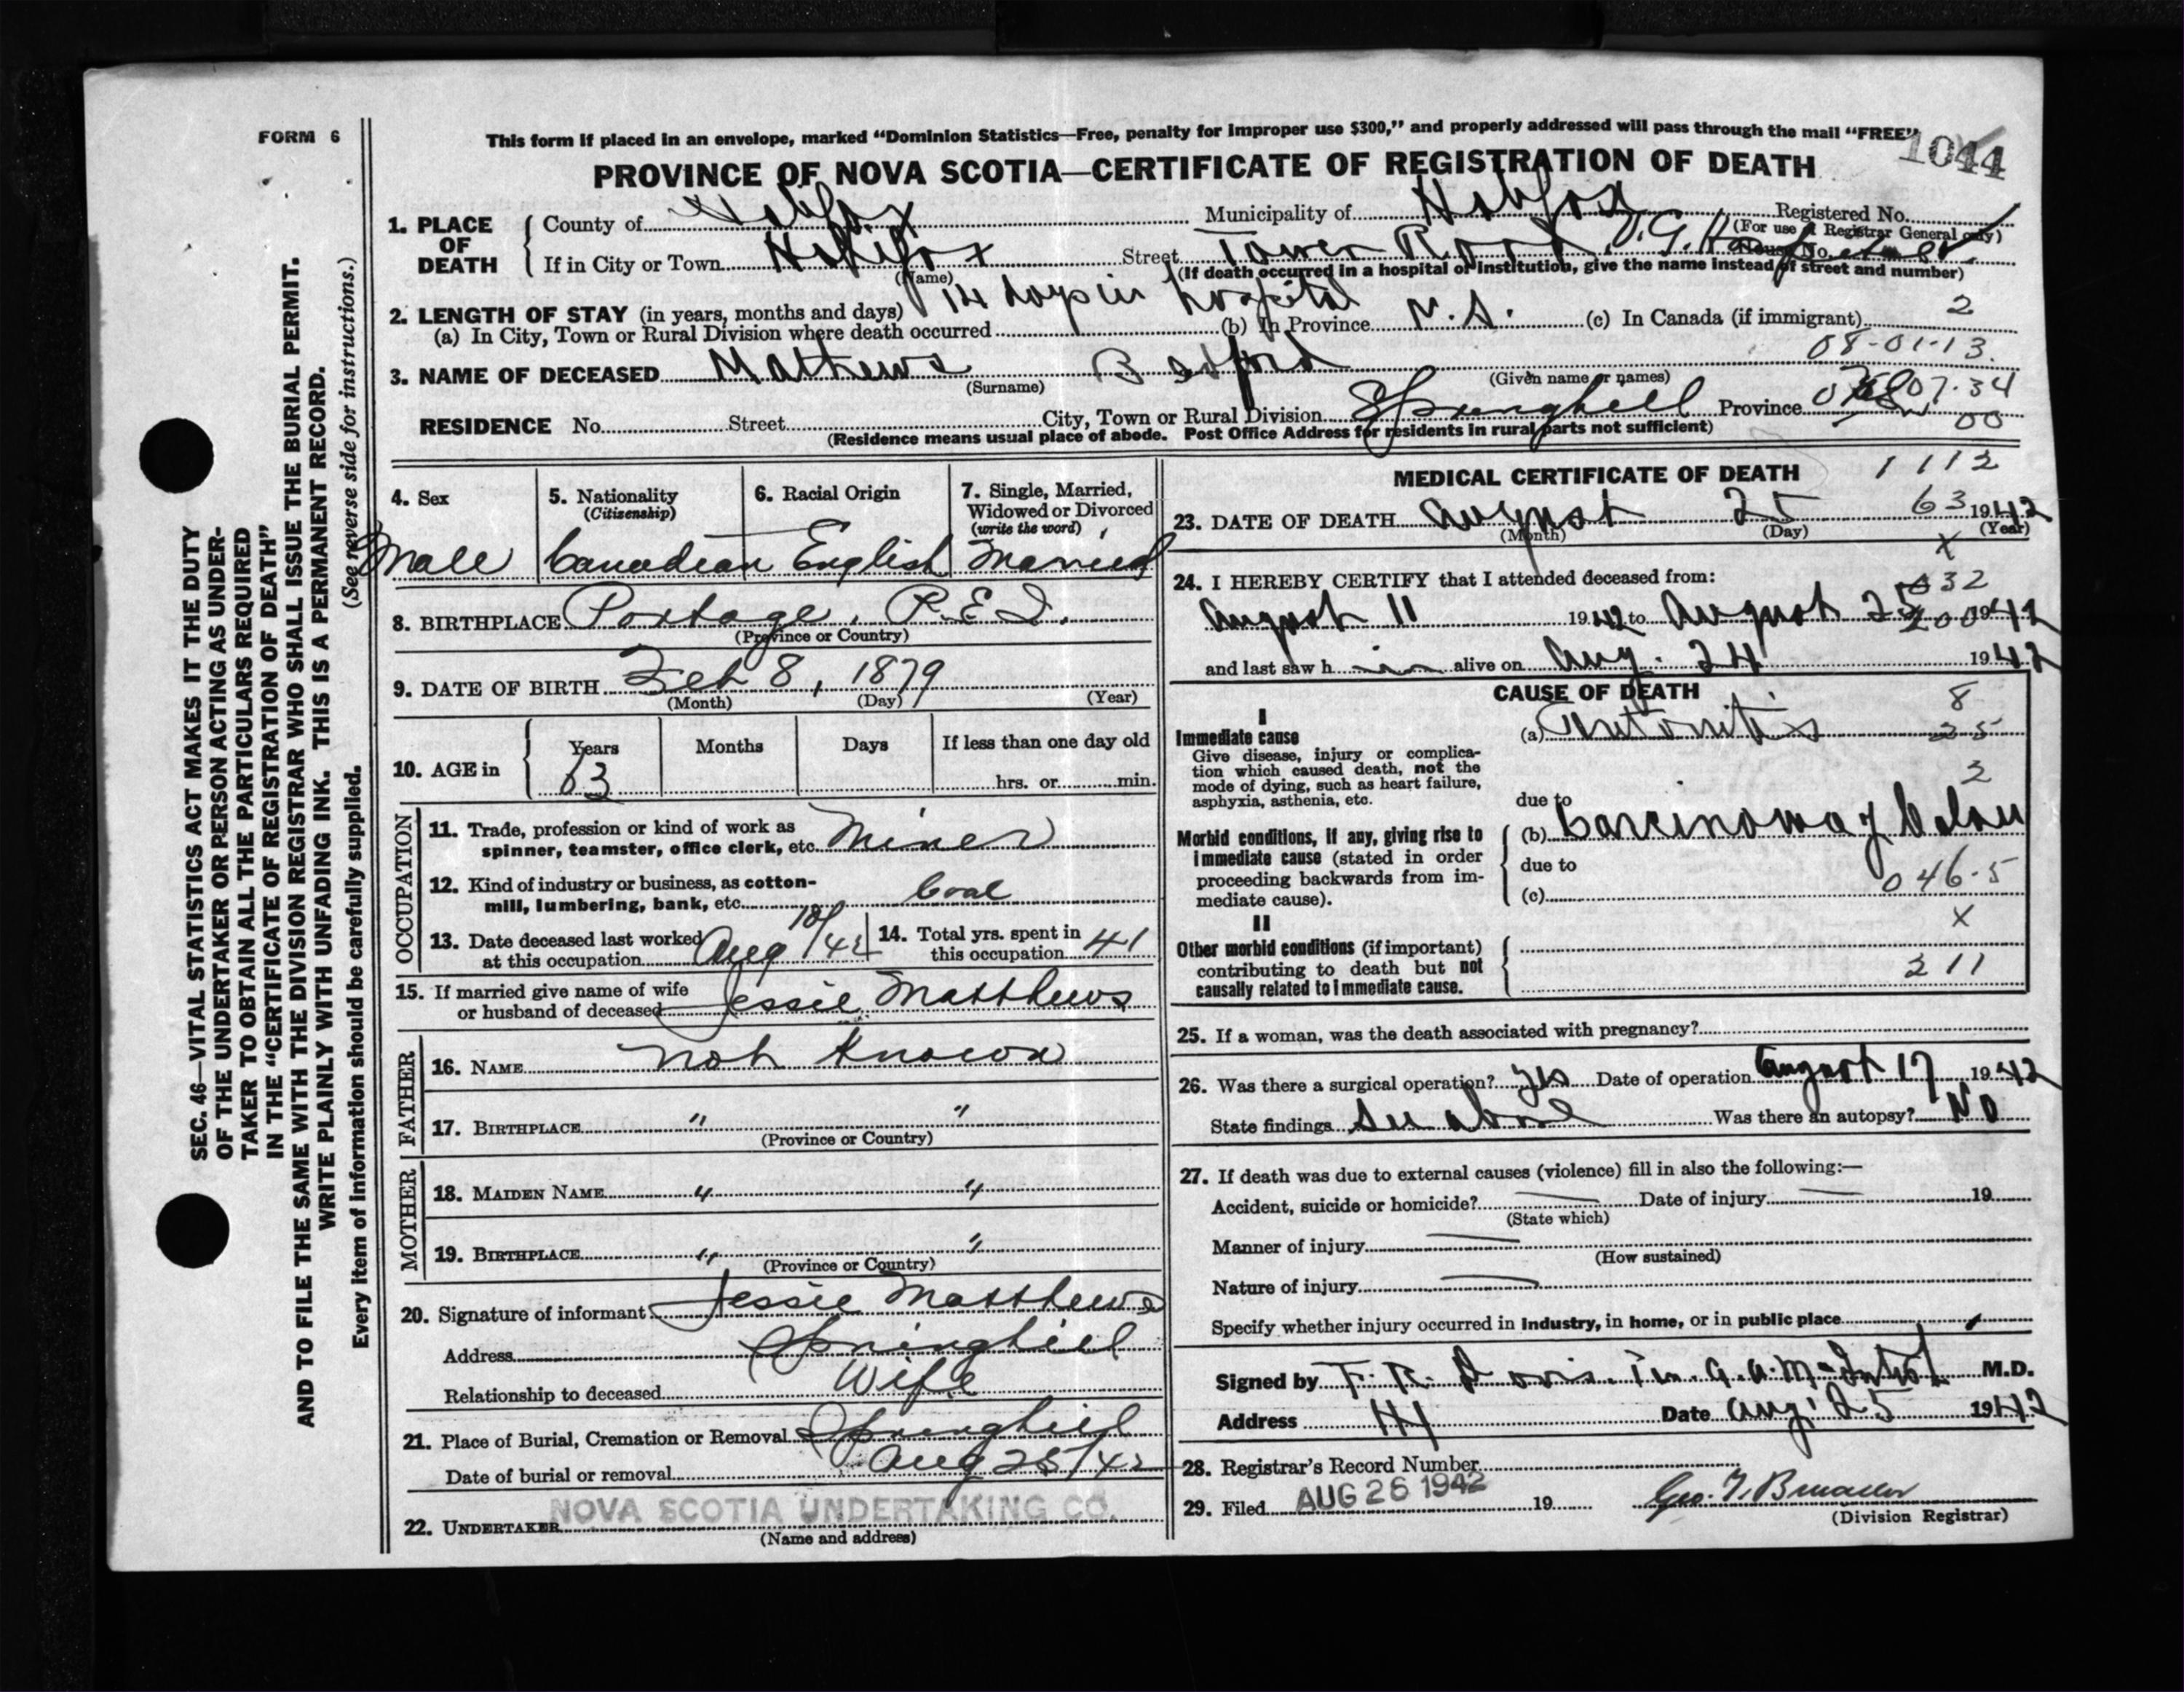 FORM 6
This form if placed in an envelope, marked “Dominion Statistics—Free, penalty for improper use $300,” and properly addressed will pass through the mail “FREE”
1044
PROVINCE OF NOVA SCOTIA—CERTIFICATE OF REGISTRATION OF DEATH
1. PLACE OF DEATH
County of Halifax Municipality of Halifax Registered No.
(For use of Registrar General only)
If in City or Town Halifax Street Tower Road V. G. House No.
(Name) (If death occurred in a hospital or institution, give the name instead of street and number)
2. LENGTH OF STAY (in years, months and days) 14 days in hospital
(a) In City, Town or Rural Division where death occurred (b) In Province N.S. (c) In Canada (if immigrant) 2
08-01-13.
3. NAME OF DECEASED Mathews
(Surname) (Given name or names)
RESIDENCE No. Street City, Town or Rural Division Springhill Province 07-34
00
(Residence means usual place of abode. Post Office Address for residents in rural parts not sufficient)
4. Sex Male
5. Nationality (Citizenship) Canadian
6. Racial Origin English
7. Single, Married, Widowed or Divorced (write the word) Married
8. BIRTHPLACE Portage, P.E.I.
(Province or Country)
9. DATE OF BIRTH Feb 8, 1879
(Month) (Day) (Year)
10. AGE in Years 63 Months Days If less than one day old
hrs. or min.
OCCUPATION
11. Trade, profession or kind of work as spinner, teamster, office clerk, etc. Miner
12. Kind of industry or business, as cotton-mill, lumbering, bank, etc. Coal
13. Date deceased last worked at this occupation Aug 10/42
14. Total yrs. spent in this occupation 41
15. If married give name of wife or husband of deceased Jessie Matthews
FATHER
16. NAME not known
17. BIRTHPLACE " "
(Province or Country)
MOTHER
18. MAIDEN NAME " "
19. BIRTHPLACE " "
(Province or Country)
20. Signature of informant Jessie Matthews
Address Springhill
Relationship to deceased Wife
21. Place of Burial, Cremation or Removal Springhill
Date of burial or removal Aug 25/42
22. UNDERTAKER NOVA SCOTIA UNDERTAKING CO.
(Name and address)
MEDICAL CERTIFICATE OF DEATH 1112
23. DATE OF DEATH August 25 63 1942
(Month) (Day) (Year)
X
24. I HEREBY CERTIFY that I attended deceased from: 032
August 11 1942 to August 25 200 1942
and last saw h im alive on Aug. 24 1942
CAUSE OF DEATH
8
I
Immediate cause (a) 25
Give disease, injury or complication which caused death, not the mode of dying, such as heart failure, asphyxia, asthenia, etc.
2
due to
Morbid conditions, if any, giving rise to immediate cause (stated in order proceeding backwards from immediate cause).
(b) Carcinoma of Colon
due to
(c) 046.5
X
II
Other morbid conditions (if important) contributing to death but not causally related to immediate cause.
211
25. If a woman, was the death associated with pregnancy?
26. Was there a surgical operation? yes Date of operation August 17 1942
State findings see above Was there an autopsy? No
27. If death was due to external causes (violence) fill in also the following:—
Accident, suicide or homicide? Date of injury 19
(State which)
Manner of injury
(How sustained)
Nature of injury
Specify whether injury occurred in industry, in home, or in public place
Signed by F. R. Davis M.D.
Address Date Aug. 25 1942
28. Registrar's Record Number
29. Filed AUG 26 1942 19
(Division Registrar)
SEC. 46—VITAL STATISTICS ACT MAKES IT THE DUTY
OF THE UNDERTAKER OR PERSON ACTING AS UNDER-
TAKER TO OBTAIN ALL THE PARTICULARS REQUIRED
IN THE “CERTIFICATE OF REGISTRATION OF DEATH”
AND TO FILE THE SAME WITH THE DIVISION REGISTRAR WHO SHALL ISSUE THE BURIAL PERMIT.
WRITE PLAINLY WITH UNFADING INK. THIS IS A PERMANENT RECORD.
(See reverse side for instructions.)
Every item of information should be carefully supplied.